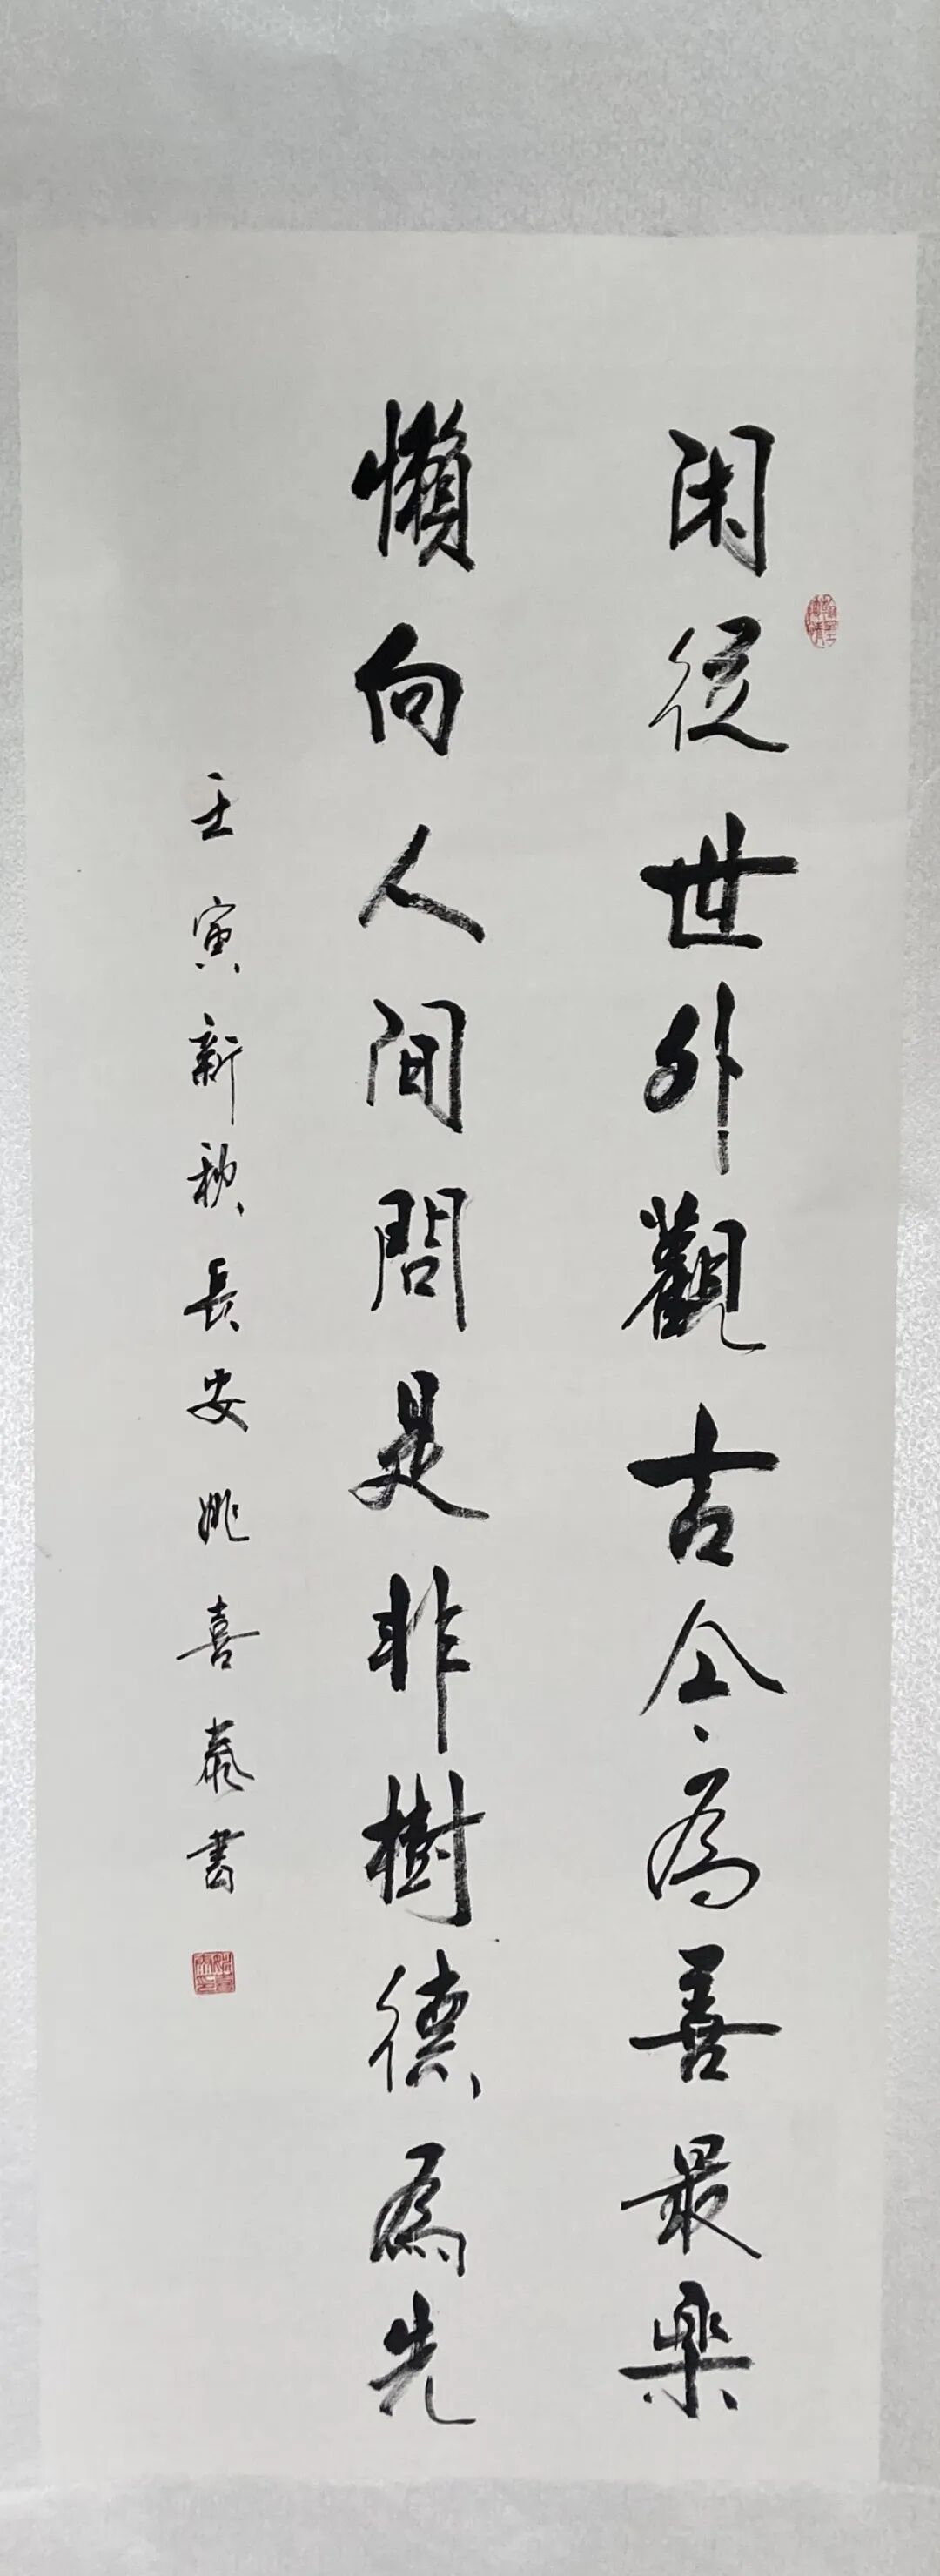 閑從世外觀古今為善最樂
懶向人間問是非樹德為先
壬寅新秋長安姚喜泰書